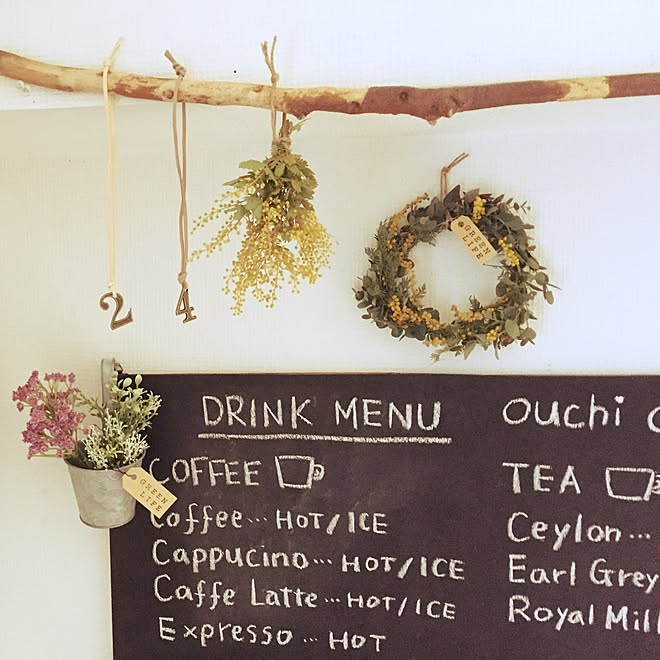 2 4
GREEN
LIFE
DRINK MENU
COFFEE
Coffee... HOT/ICE
Cappucino... HOT/ICE
Caffe Latte... HOT/ICE
Expresso... HOT
GREEN
LIFE
ouchi
TEA
Ceylon...
Earl Grey
Royal